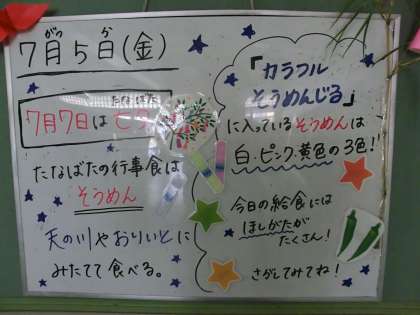 7月5日(金)
がつ か
たなばた
7月7日は七
たなばたの行事食は
そうめん
天の川やおりいとに
みたてて食べる。
「カラフル
そうめんじる」
に入っているそうめんは
白・ピンク・黄色の3色!!
今日の給食には
ほしがたが
たくさん!
さがしてみてね!